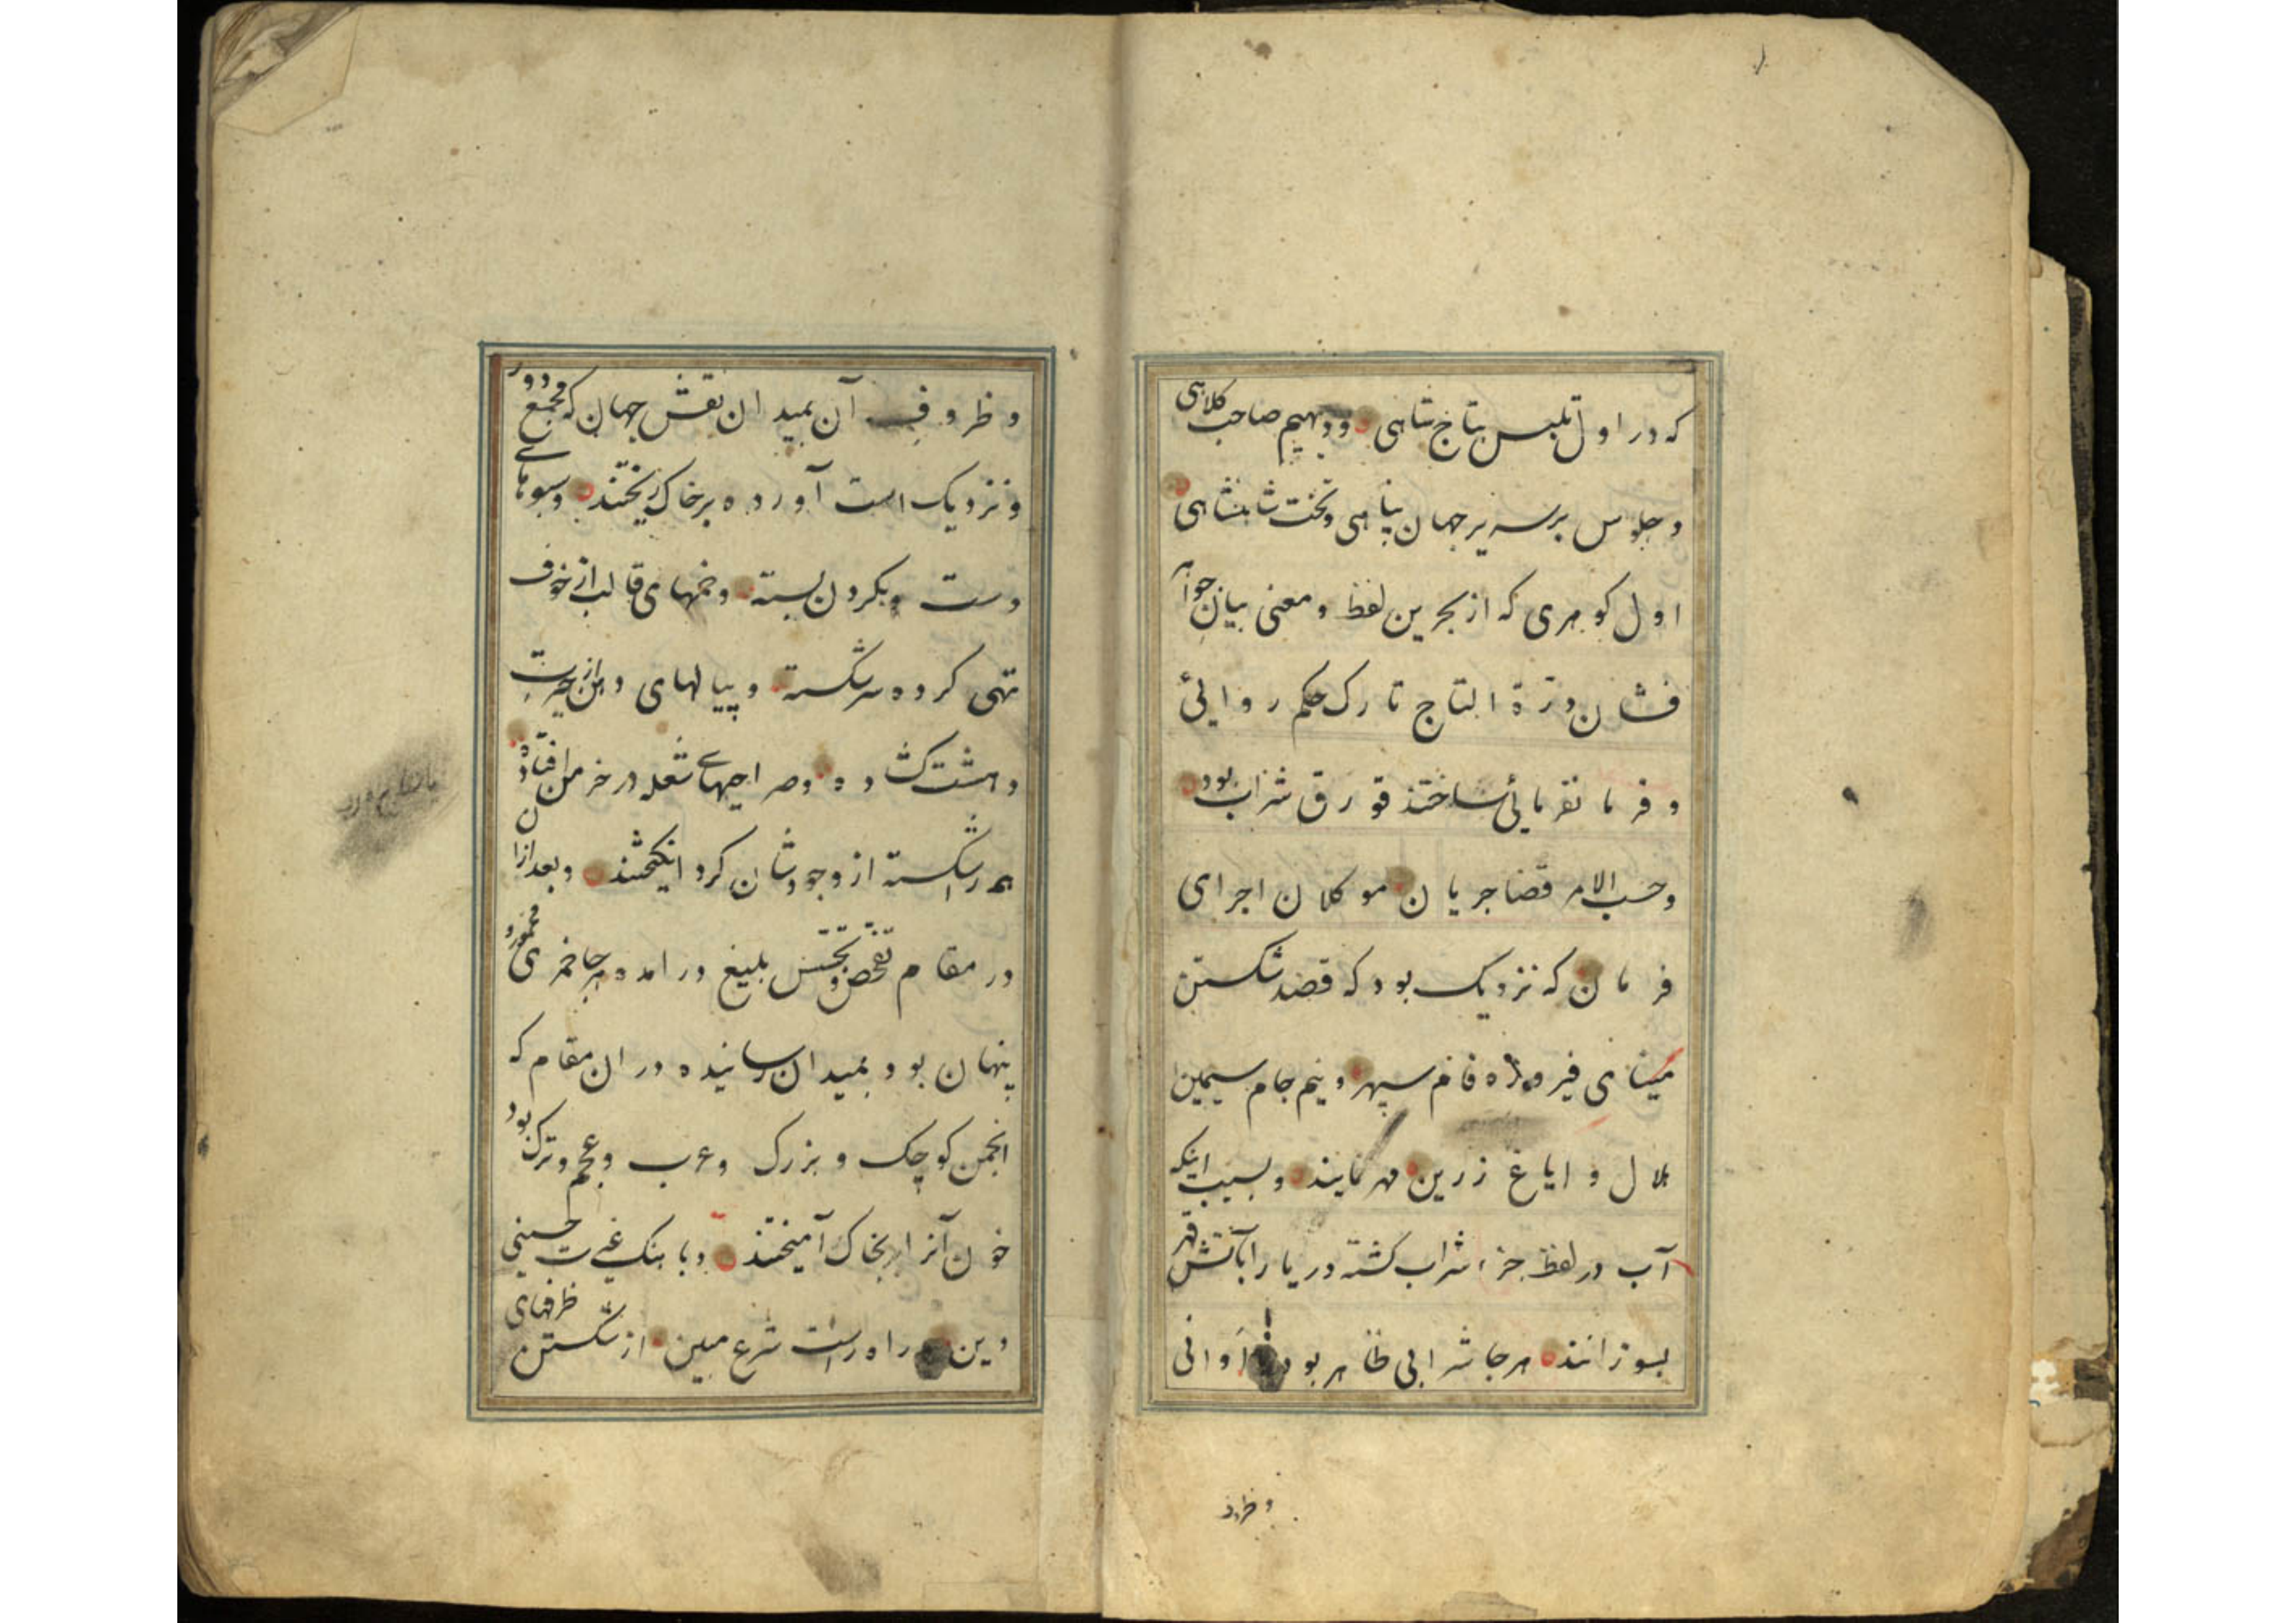 که در اول تلبس بتاج شاهی ودیهیم صاحب کلاهی
وجلوس بر سریر جهان پناهی وتخت شاهنشاهی
اول کوهری که از بحرین لفظ ومعنی بیان جواهر
فشان درة التاج تارک حکم روایٔی
وفرمانفرمایٔی ساختند قورق شراب بود
وحسب الامر قضا جریان موکلان اجرای
فرمان که نزدیک بود که قصد شکستن
مینای فیروزه فام سپهر ونیم جام سیمین
هلال وایاغ زرین مهر نمایند وبسبب اینکه
آب در لفظ جزء شراب کشته دریا را بآتش قهر
بسوزانند هرجا شرابی ظاهر بود اوانی
وظروف
وظروف آن بمیدان نقش جهان که مجمع دور
ونزدیک است آورده برخاک ریختند وسبوهای
دست وبکردن بسته وخمهای قالب از خوف
تهی کرده سرشکسته وپیالهای دهن از حیرت
وهشت کشاده وصراحیهای شعله در خرمن افتاده
همه را شکسته از وجودشان کرد انکیختند وبعد ازان
در مقام تفحص وتجسس بلیغ در امده هرجا خمری مخمور و
پنهان بود بمیدان رسانیده در ان مقام که
انجمن کوچک وبزرک وعرب وعجم وترک بود
خون آنرا بخاک آمیختند وبابنک غیرت حسینی
دین در راه راست شرع مبین از شکستن ظرفهای